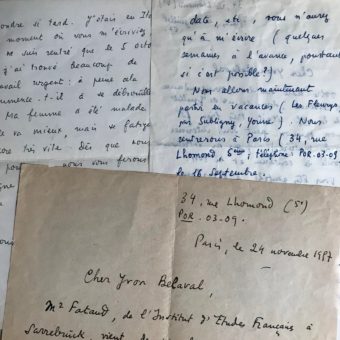 ondre si tard. J'étais en It
moment où vous m'écrivi
ne suis rentré que le 5 octo
J'ai trouvé beaucoup de
avail urgent: à peine cela
mmence-t-il à se débrouille
Ma femme a été malade
va mieux, mais se fatigue
ore très vite. Dès que nous
pourrons nous vous ferons
date, etc., vous n'aurez
qu'à m'écrire (quelques
semaines à l'avance, pourtant
si c'est possible!)
Nous allons maintenant
partir en vacances (Les Fleurys,
par Subligny, Yonne). Nous
rentrerons à Paris (34, rue
Lhomond, 5ème; téléphone: POR.03-09)
le 16 Septembre.
34, rue Lhomond (5e)
POR. 03-09.
Paris, le 24 novembre 1957
Cher Yvon Belaval,
Mr Fataud, de l'Institut d'Etudes Français à
Sarrebrück, vient de